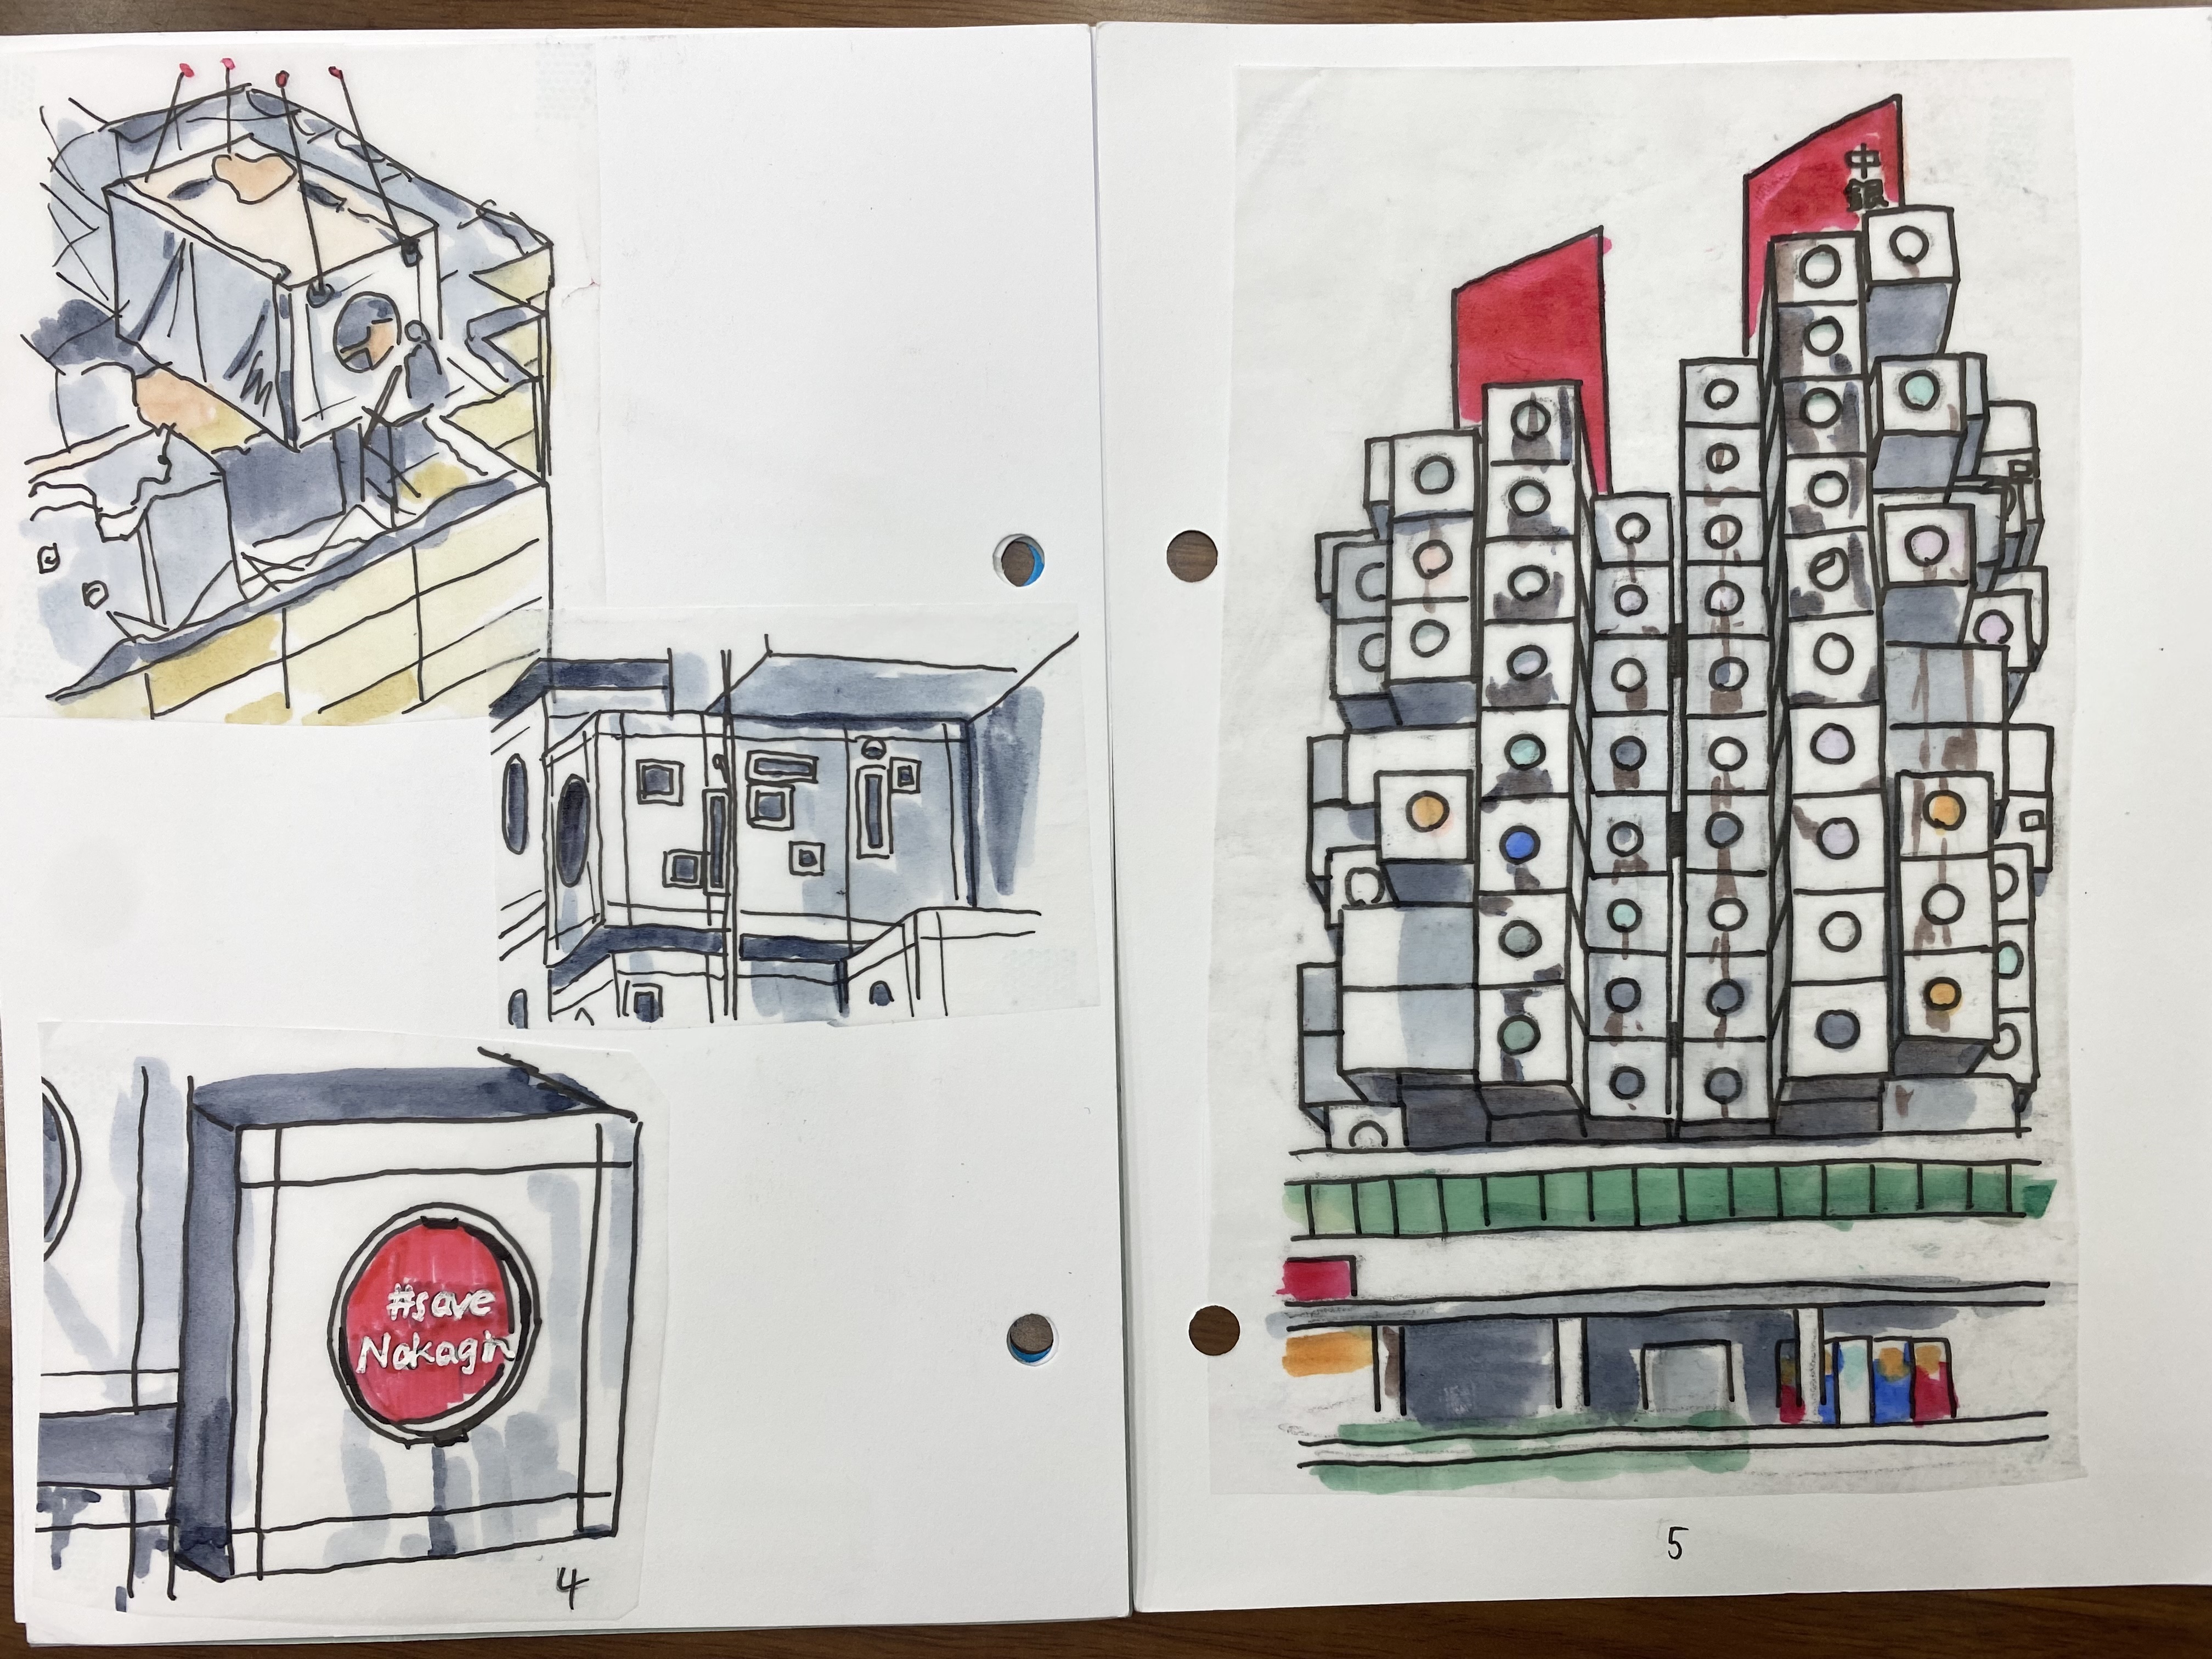 #save
Nakagin
4
中
銀
5